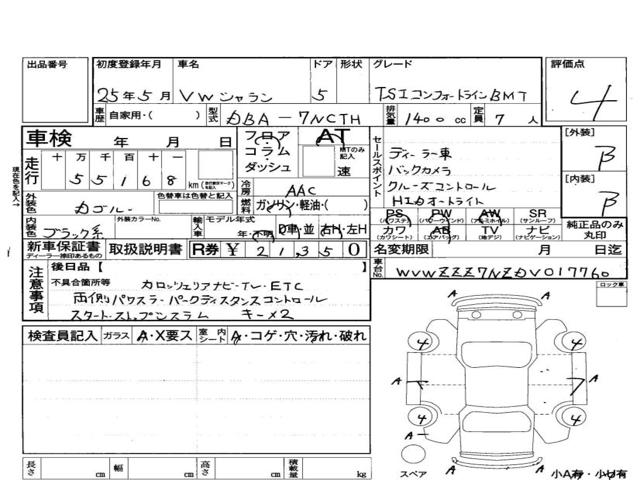 出品番号 初度登録年月 車名 ドア 形状 グレード 評価点
25年5月 VWシャラン 5 TSIコンフォートラインBMT 4
車歴 自家用・( ) 型式 DBA-7NCTH 排気量 1400 cc 定員 7 人
車検 年 月 日 フロア コラム ダッシュ AT MTのみ記入 速
セールスポイント
[外装] B
ディーラー車
バックカメラ
クルーズコントロール
HIDオートライト
[内装] B
現在色を記入→
走行 十 万 千 百 十 一
5 5 1 6 8 km
冷房 AAC
燃料 ガソリン・軽油・( )
外装色 色替車は色替と記入
PS PW AW SR
(パワステ) (パワーウィンドウ) (アルミホイル) (サンルーフ)
カワ AB TV ナビ
(カワシート) (エアバッグ) (地デジ) (ナビゲーション)
純正品のみ丸印
内装色 ブラック系 外装カラーNo. 輸入車 モデル年式
年・不明 D車・並 右H・左H
新車保証書 ディーラー捺印あるもの 取扱説明書 R券 ¥ 21350
名変期限 月 日迄
車台No. WVWZZZ7NZDV017760
注意事項
後日品【
不具合箇所等 カロッツェリアナビ・TV・ETC
両側パワスラ・パークディスタンスコントロール
キー×2
ロック車
検査員記入 ガラス A・X要ス 室内シート A・コゲ・穴・汚れ・破れ
A
4 4
A A
A A
4 4
A
A
スペア
小A有・小U有
長さ cm 幅 cm 高さ cm 積載量 kg